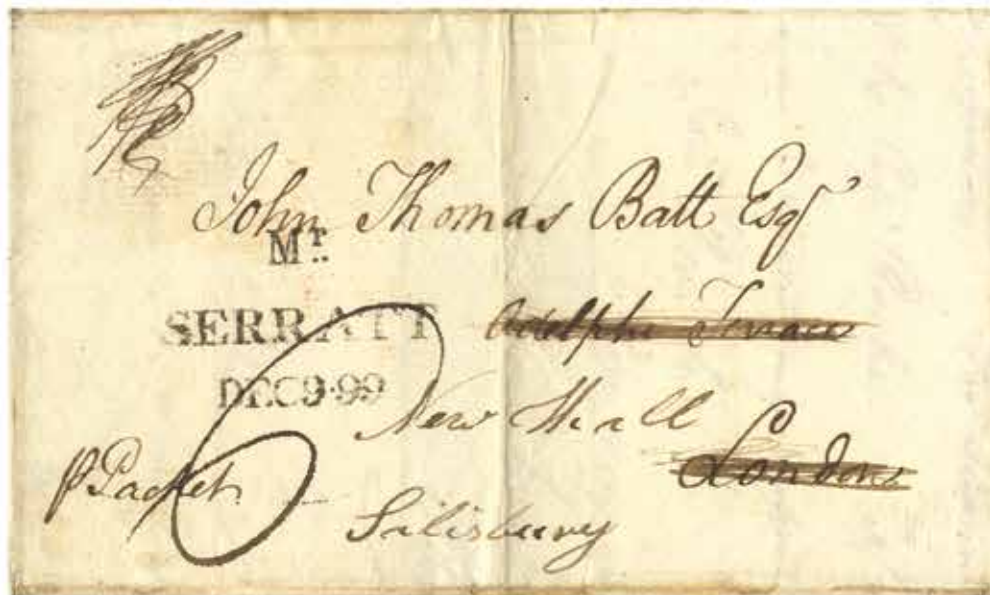 John Thomas Batt Esqr
Mr.
SERRATT
Adelphi Terrace
DEC 9·99
New Hall
London
p Packet
6
Salisbury